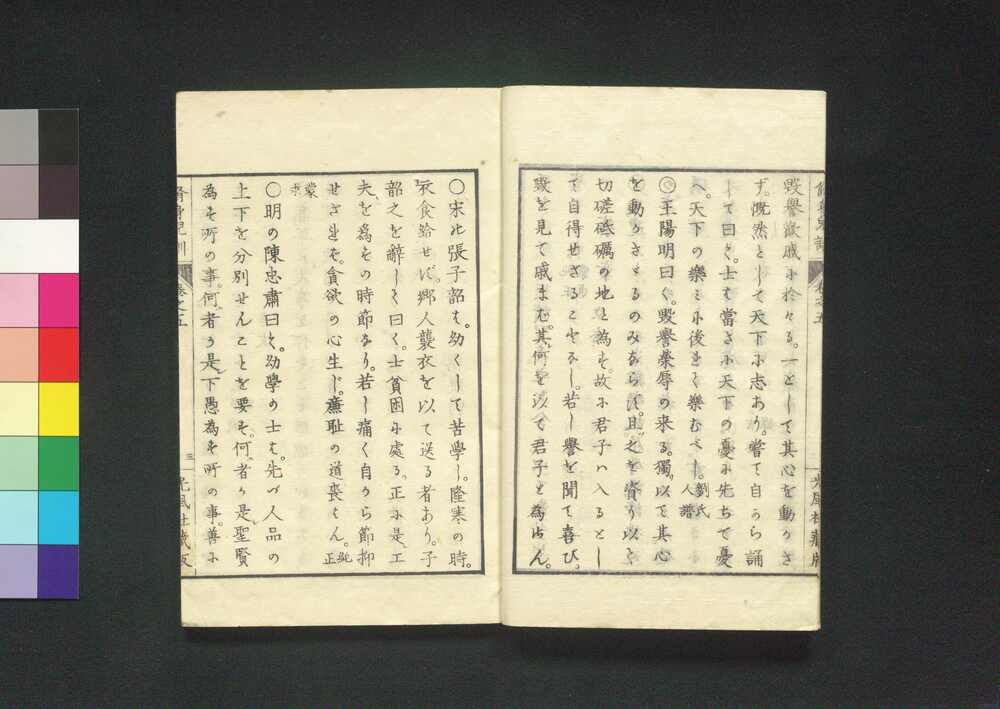 毀譽歡戚に於ける。一として其心を動かさ
ず。慨然として天下に志あり。嘗て自から誦
して曰く。士は當さに天下の憂に先ちて憂
へ。天下の樂みに後れて樂むべし。劉氏人譜
◎王陽明曰く。毀譽榮辱の来る。獨以て其心
を動かさゞるのみならず。且之を資り以て
切磋砥礪の地と為す。故に君子ハ入るとし
て自得せざることなし。若し譽を聞て喜び。
毀を見て戚まば。其何を以て君子と為さん。
〇宋の張子韶は。幼くして苦學し。隆寒の時。
衣食給せず。郷人襲衣を以て送る者あり。子
韶之を辭して曰く。士貧困に處る。正に是工
夫を為すの時節なり。若し痛く自から節抑
せざれば。貪欲の心生じ。廉耻の道喪はん。純正
蒙求
〇明の陳忠肅曰く。幼學の士は。先づ人品の
上下を分別せんことを要す。何者か是聖賢
為す所の事。何者か是下愚為す所の事。善に
脩身兒訓
卷之五
三
光風社藏版